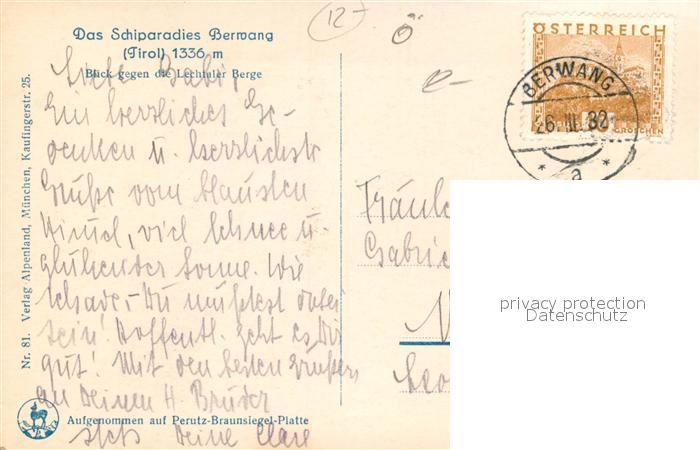 12
Ö
Das Schiparadies Berwang
(Tirol) 1336 m
Blick gegen die Lechtaler Berge
ÖSTERREICH
GROSCHEN
BERWANG
26.III.32
* a *
Liebe Gabi,
Ein herzliches Ge-
denken u. herzlichste
Grüße vom blausten
Himmel, viel Schnee u.
glühender Sonne. Wie
schade, - Du müßtest dabei
sein! Hoffentl. geht es Dir
gut! Mit den besten Grüßen
an Deinen H. Bruder
stets Deine Clare
Nr. 81. Verlag Alpenland, München, Kaufingerstr. 25.
Aufgenommen auf Perutz-Braunsiegel-Platte
Fräule
Gabrie
privacy protection
Datenschutz